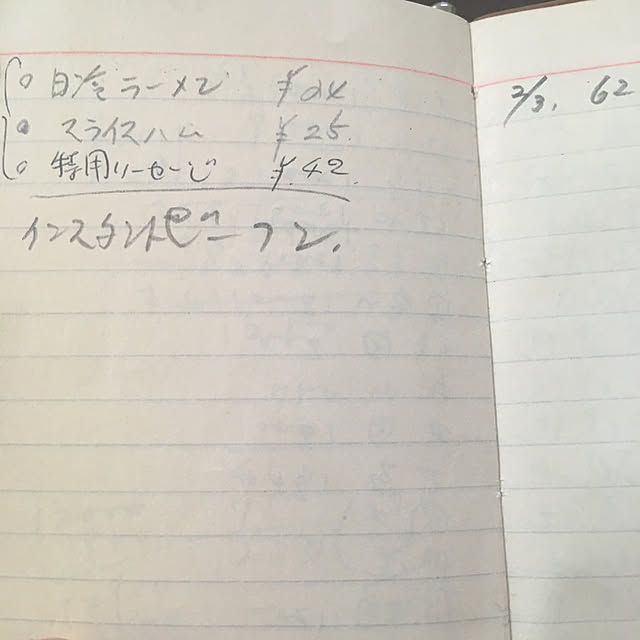 日冷ラーメン ¥24
スライスハム ¥25.
特用ソーセージ ¥.42.
インスタントビーフン.
2/3, 62